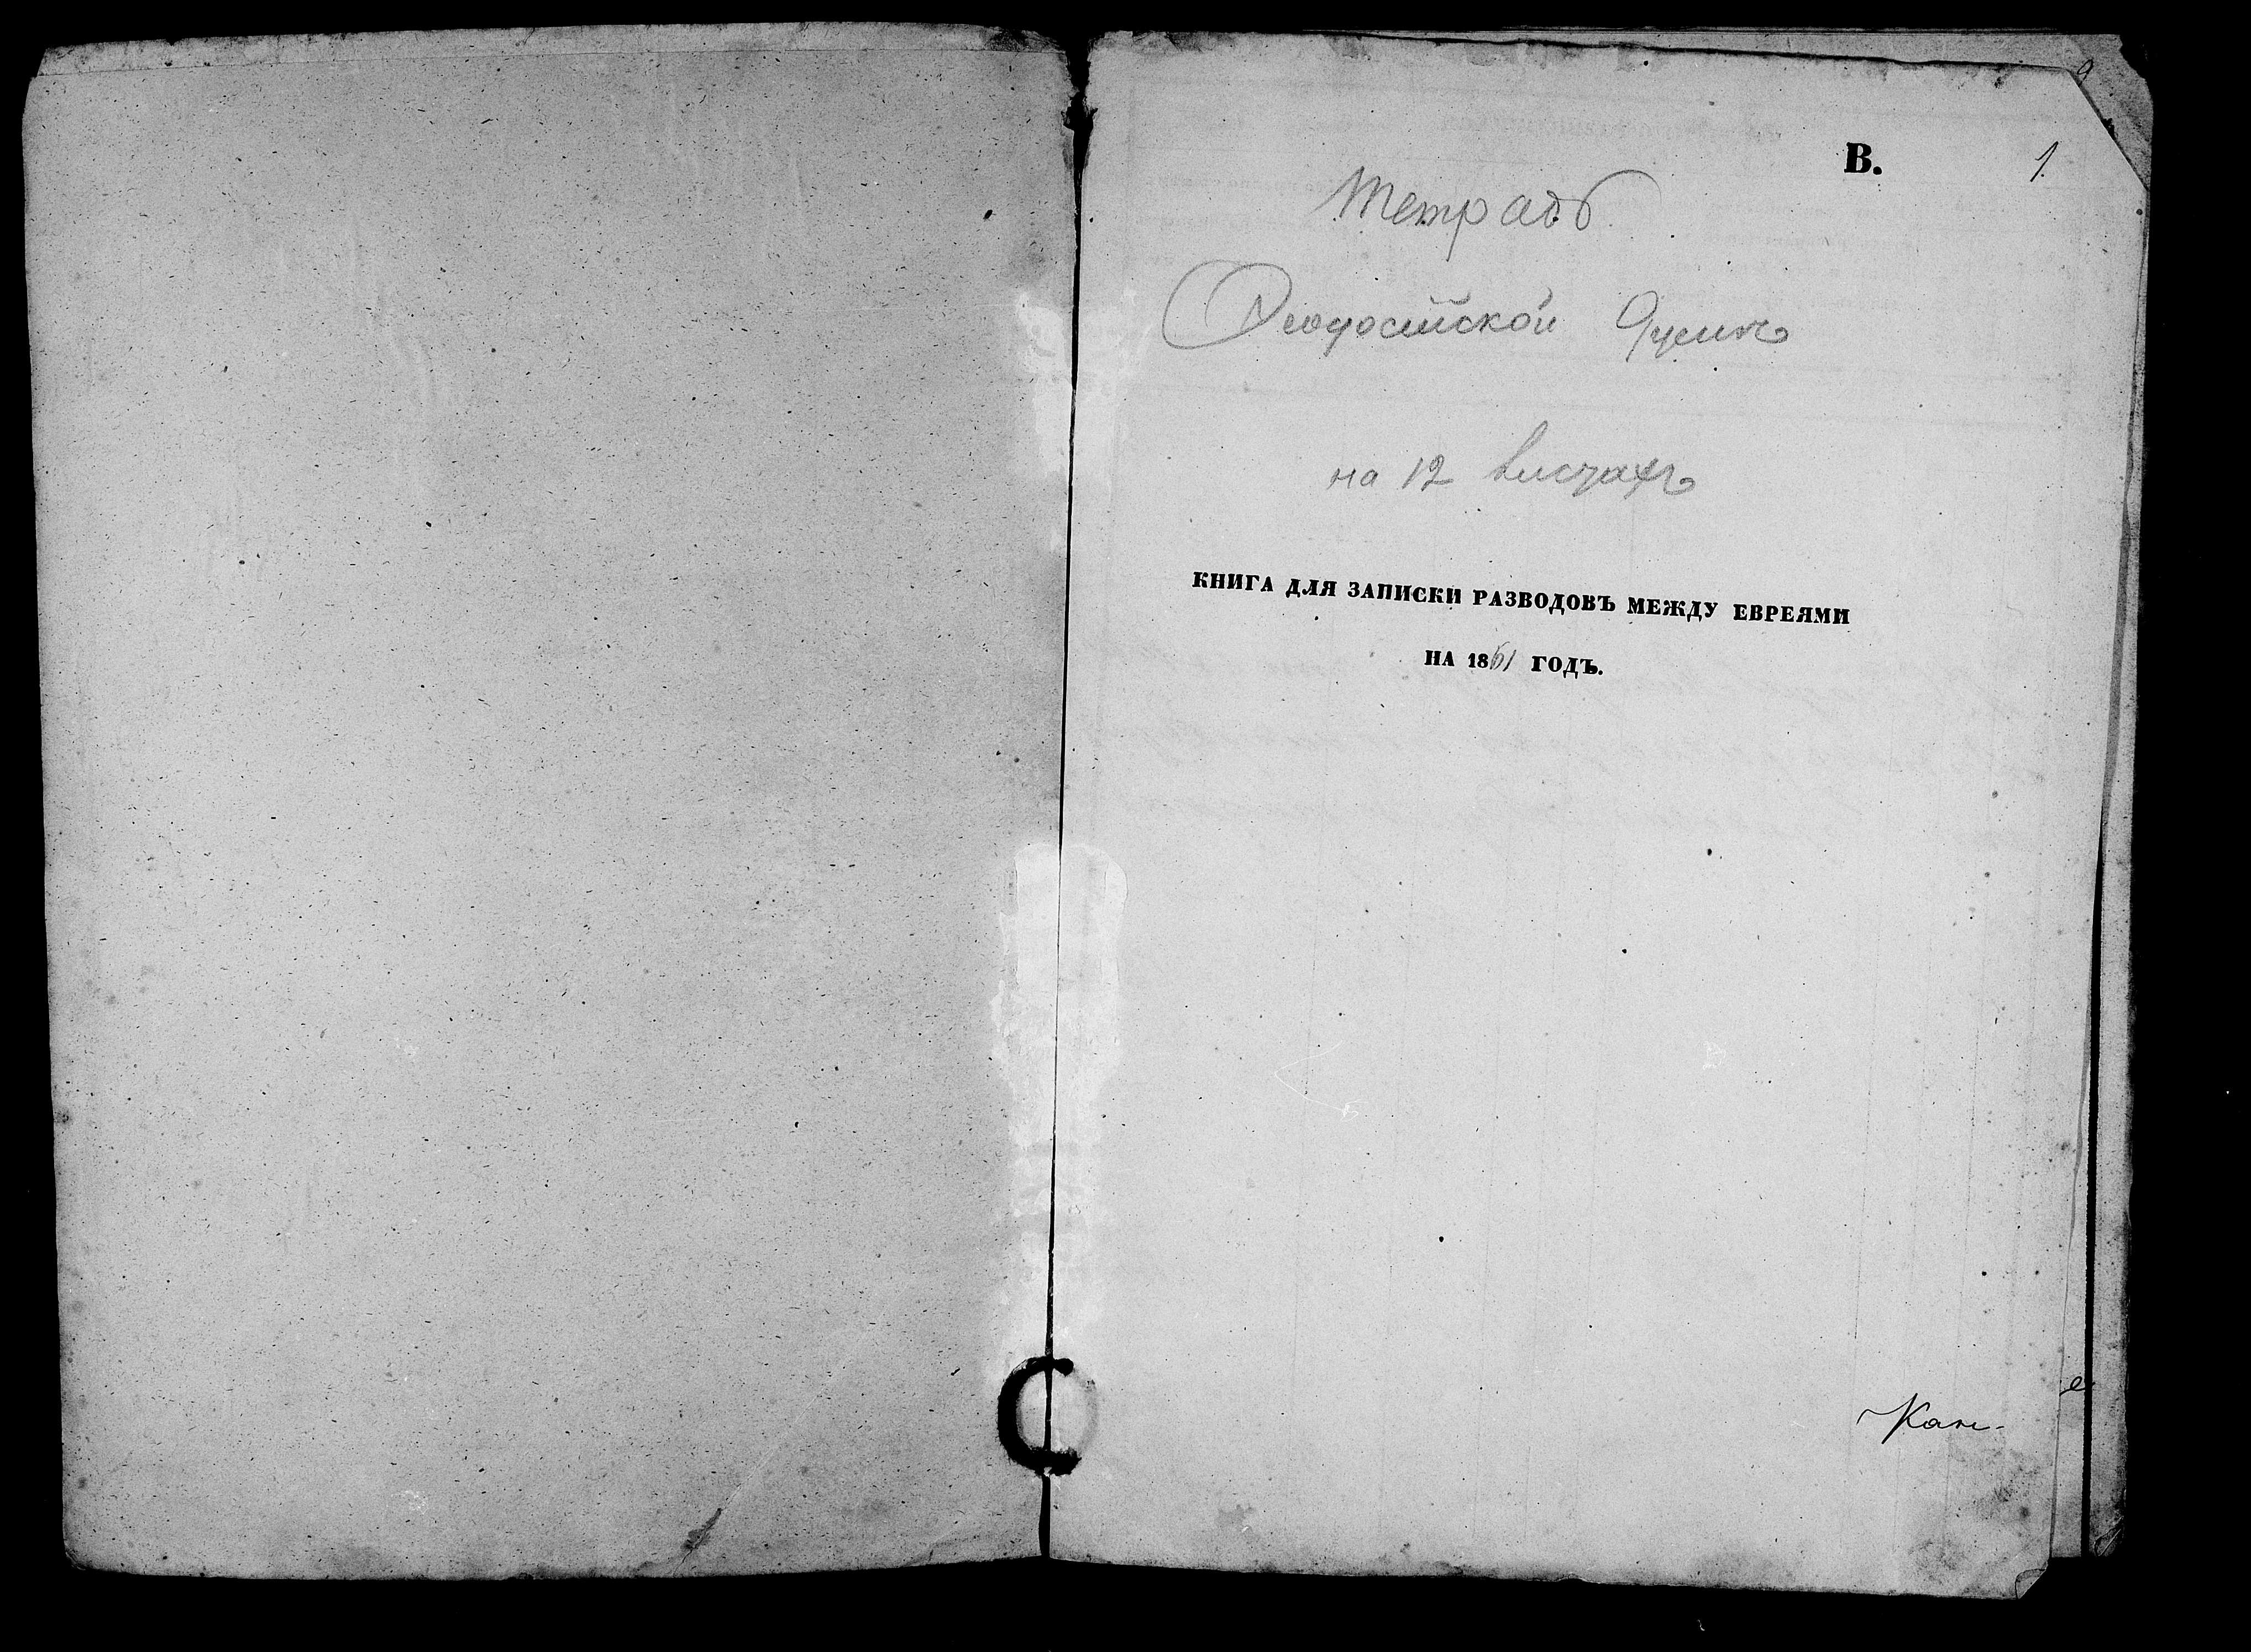 В.
1
Тетрадь
Феодосійской
на 12 листахъ
КНИГА ДЛЯ ЗАПИСКИ РАЗВОДОВЪ МЕЖДУ ЕВРЕЯМИ
НА 1861 ГОДЪ.